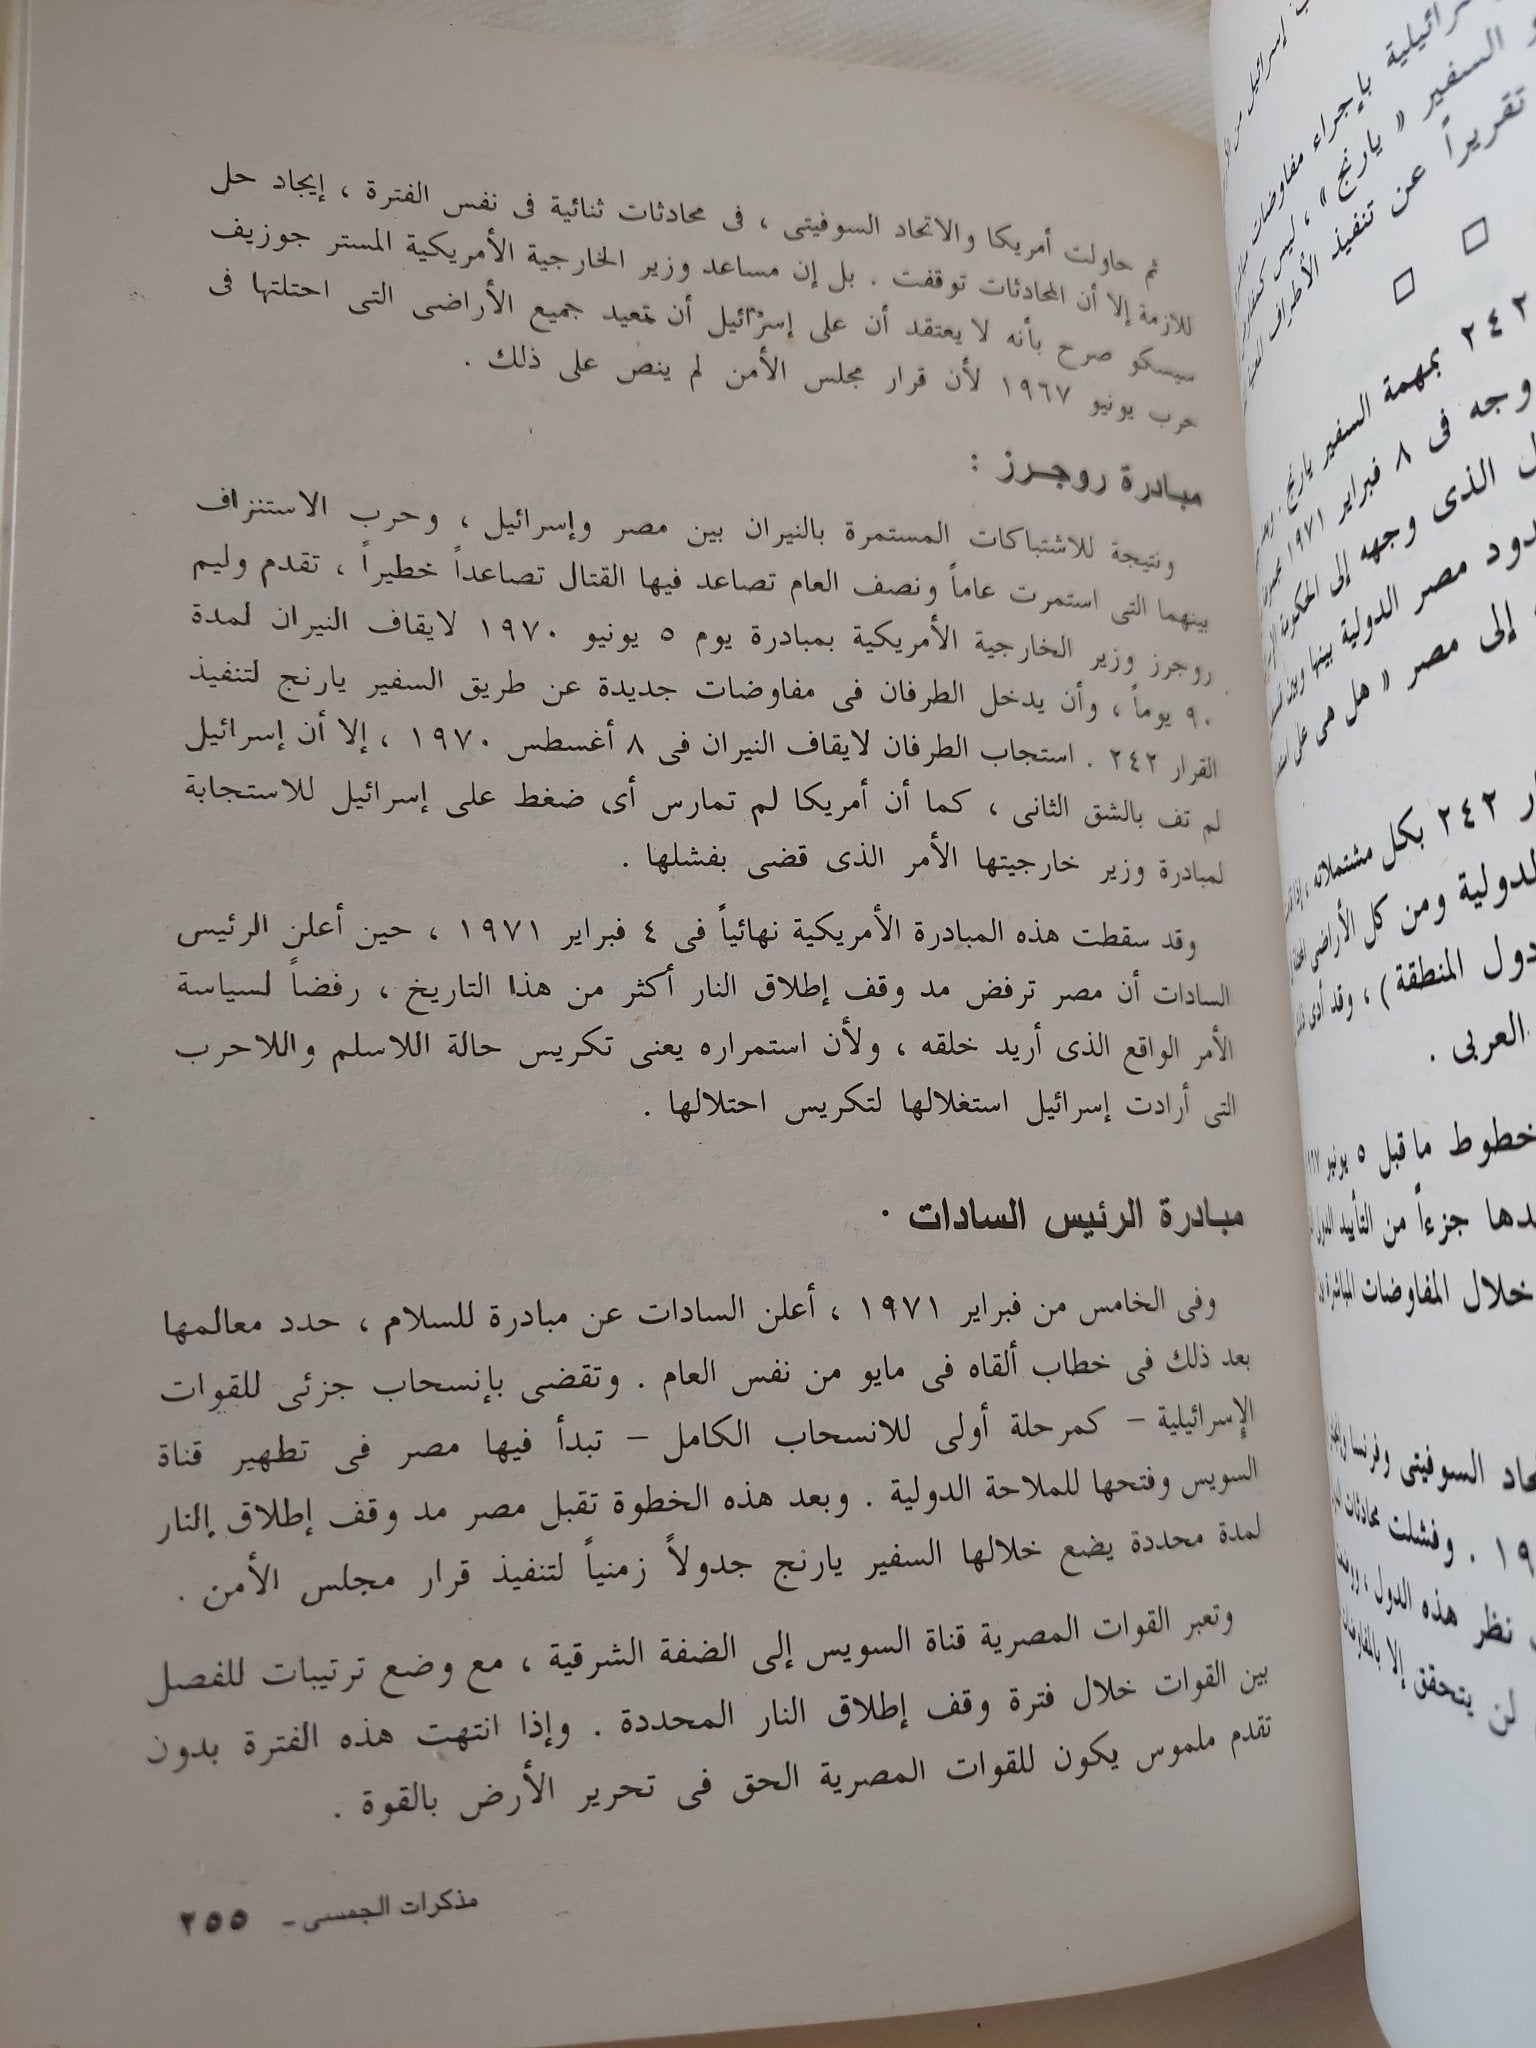 ثم حاولت أمريكا والاتحاد السوفيتى ، فى محادثات ثنائية فى نفس الفترة ، إيجاد حل
للازمة إلا أن المحادثات توقفت . بل إن مساعد وزير الخارجية الأمريكية المستر جوزيف
سيسكو صرح بأنه لا يعتقد أن على إسرائيل أن تعيد جميع الأراضى التى احتلتها فى
حرب يونيو ١٩٦٧ لأن قرار مجلس الأمن لم ينص على ذلك .
مبادرة روجرز :
ونتيجة للاشتباكات المستمرة بالنيران بين مصر وإسرائيل ، وحرب الاستنزاف
بينهما التى استمرت عاماً ونصف العام تصاعد فيها القتال تصاعداً خطيراً ، تقدم وليم
روجرز وزير الخارجية الأمريكية بمبادرة يوم ٥ يونيو ١٩٧٠ لايقاف النيران لمدة
٩٠ يوماً ، وأن يدخل الطرفان فى مفاوضات جديدة عن طريق السفير يارنج لتنفيذ
القرار ٢٤٢ . استجاب الطرفان لايقاف النيران فى ٨ أغسطس ١٩٧٠ ، إلا أن إسرائيل
لم تف بالشق الثانى ، كما أن أمريكا لم تمارس أى ضغط على إسرائيل للاستجابة
لمبادرة وزير خارجيتها الأمر الذى قضى بفشلها .
وقد سقطت هذه المبادرة الأمريكية نهائياً فى ٤ فبراير ١٩٧١ ، حين أعلن الرئيس
السادات أن مصر ترفض مد وقف إطلاق النار أكثر من هذا التاريخ ، رفضاً لسياسة
الأمر الواقع الذى أريد خلقه ، ولأن استمراره يعنى تكريس حالة اللاسلم واللاحرب
التى أرادت إسرائيل استغلالها لتكريس احتلالها .
مبادرة الرئيس السادات .
وفى الخامس من فبراير ١٩٧١ ، أعلن السادات عن مبادرة للسلام ، حدد معالمها
بعد ذلك فى خطاب ألقاه فى مايو من نفس العام . وتقضى بإنسحاب جزئى للقوات
الإسرائيلية – كمرحلة أولى للانسحاب الكامل – تبدأ فيها مصر فى تطهير قناة
السويس وفتحها للملاحة الدولية . وبعد هذه الخطوة تقبل مصر مد وقف إطلاق النار
لمدة محددة يضع خلالها السفير يارنج جدولاً زمنياً لتنفيذ قرار مجلس الأمن .
وتعبر القوات المصرية قناة السويس إلى الضفة الشرقية ، مع وضع ترتيبات للفصل
بين القوات خلال فترة وقف إطلاق النار المحددة . وإذا انتهت هذه الفترة بدون
تقدم ملموس يكون للقوات المصرية الحق فى تحرير الأرض بالقوة .
مذكرات الجمسى – ٢٥٥
بإجراء مفاوضات
السفير « يارنج » ، ليس
تقريراً عن تنفيذ الأطراف
٢٤٢ بمهمة السفير يارنج .
وجه فى ٨ فبراير ١٩٧١
الذى وجهه إلى الحكومة
مصر الدولية بينها وبين
إلى مصر « هل هى على
٢٤٢ بكل مشتملاته ،
ومن كل الأراضى
دول المنطقة ) ، وقد أدى
العربى .
خطوط ما قبل ٥ يونيو
جزءاً من التأييد
خلال المفاوضات المباشرة
السوفيتى وفرنسا
. وفشلت محادثات
نظر هذه الدول ،
لن يتحقق إلا